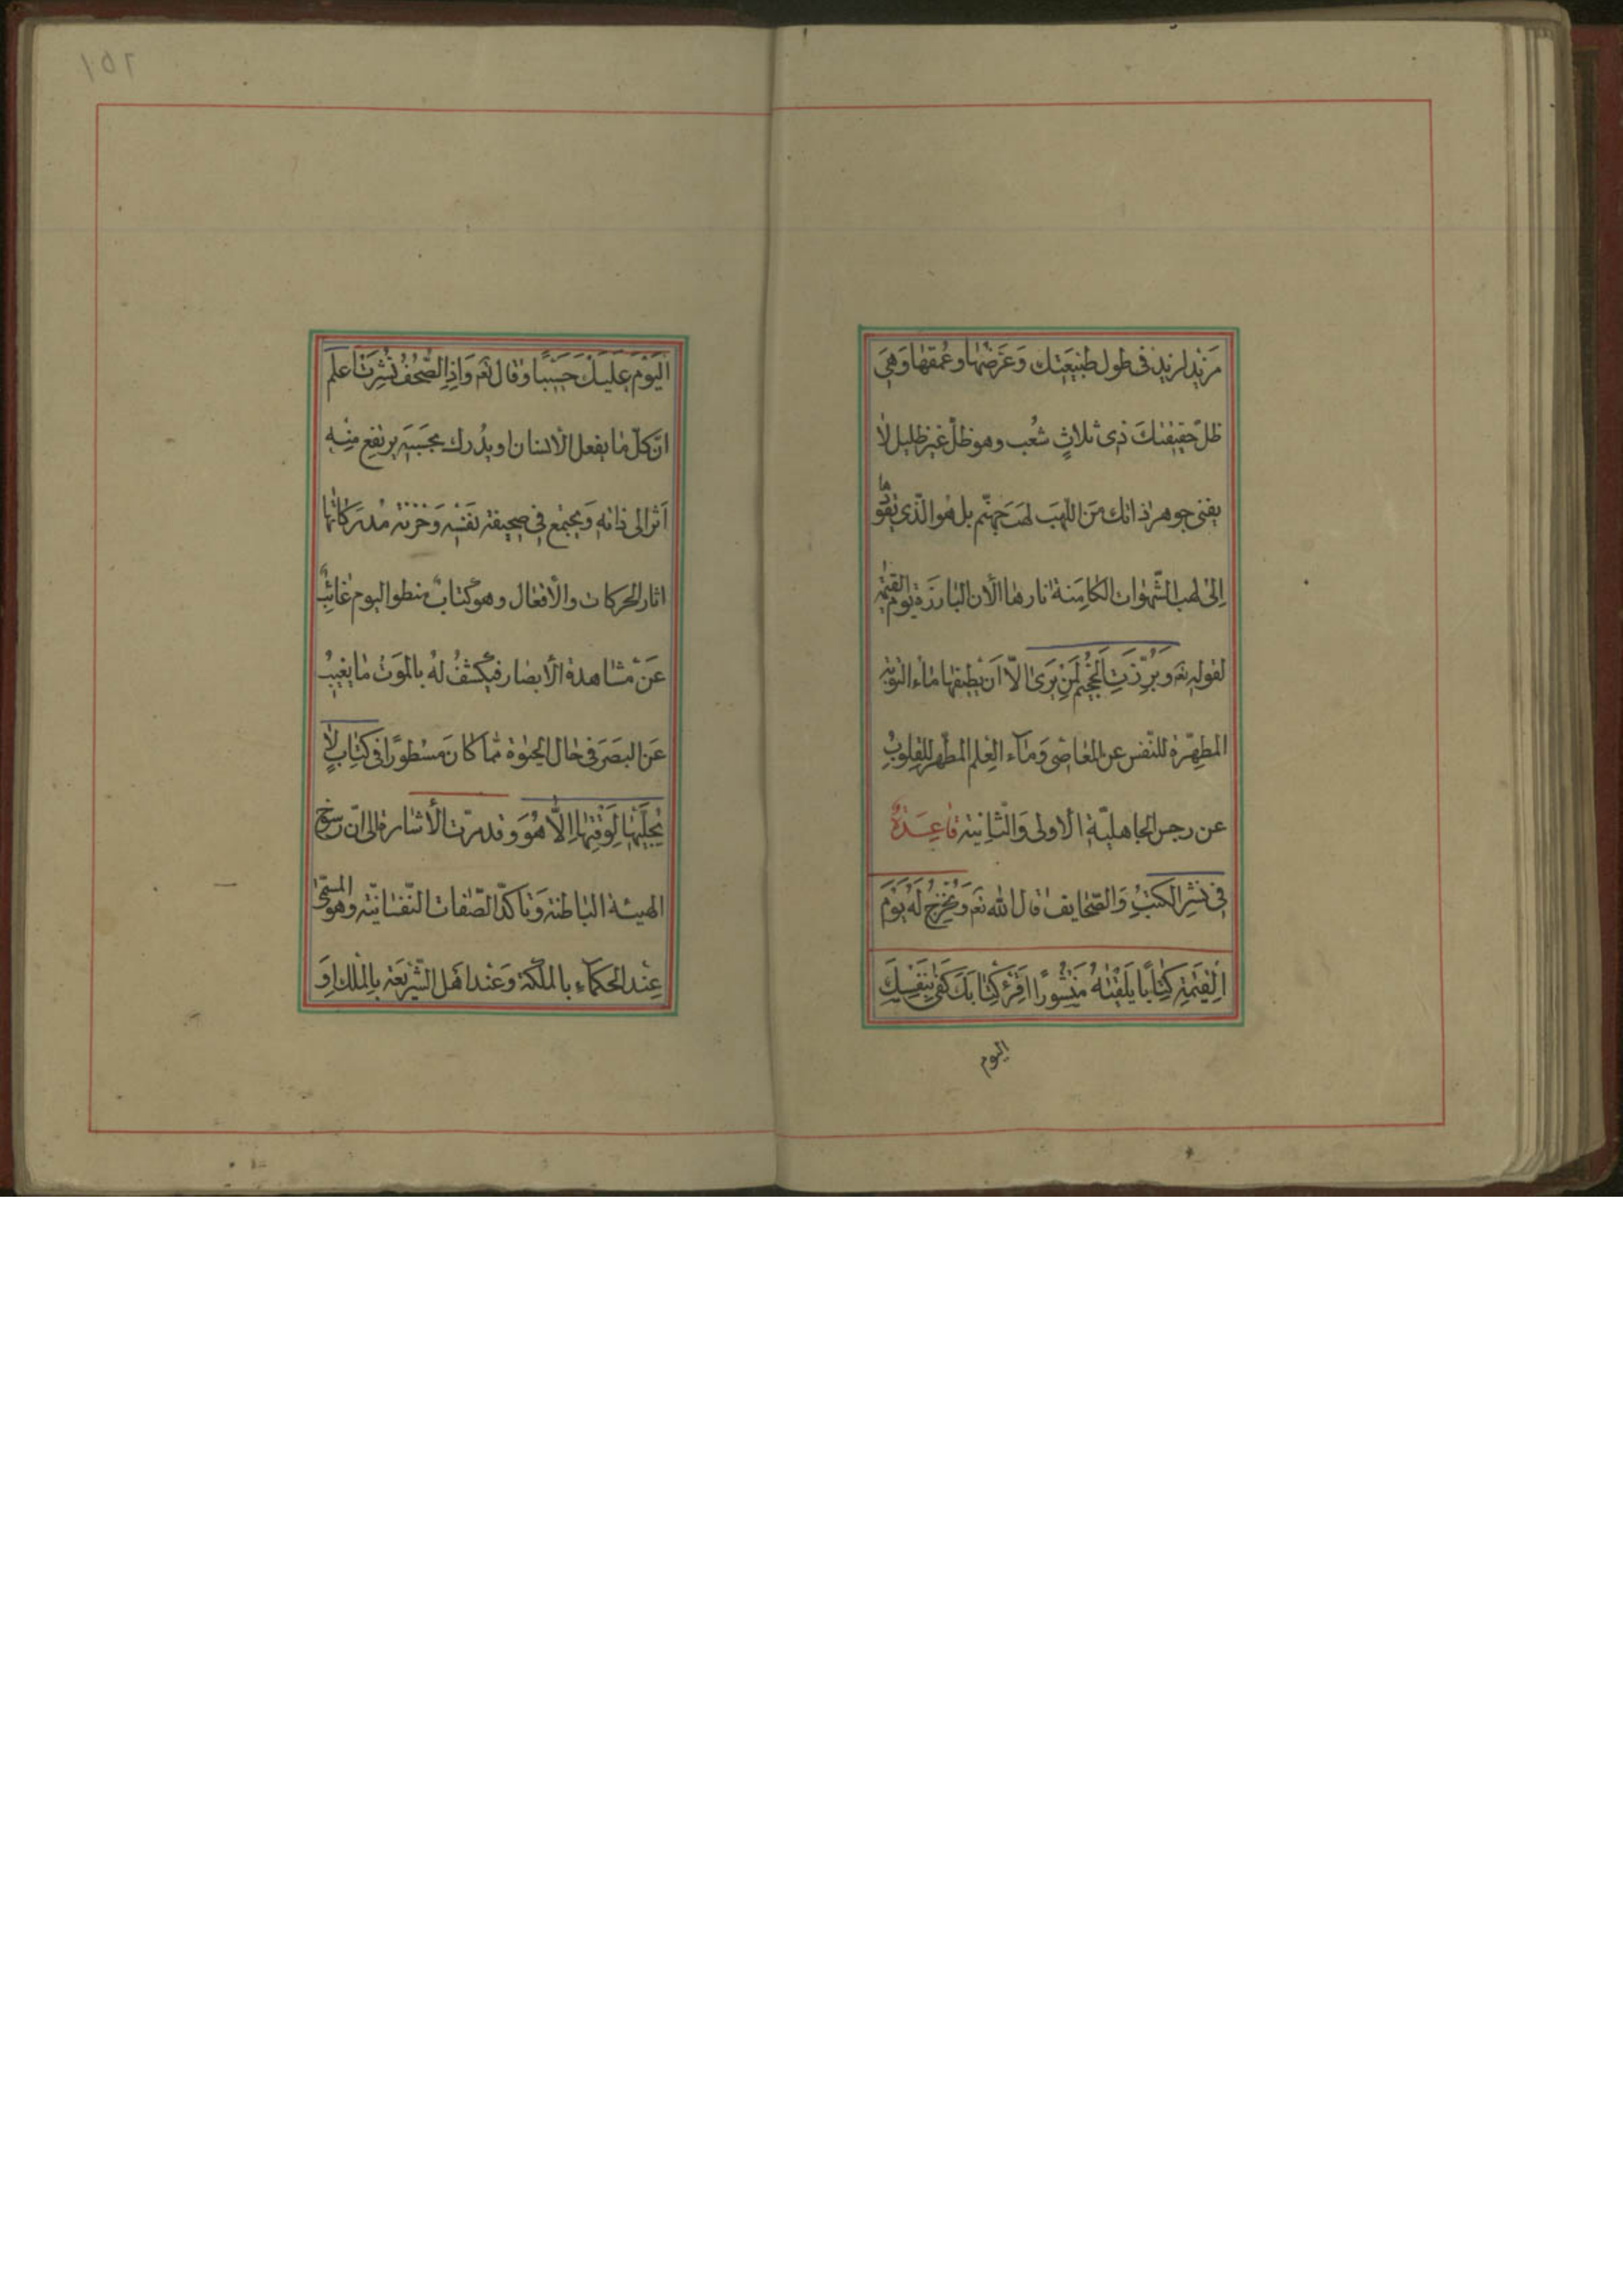 مزید لزید فی طول طبیعتك وعرضها وعمقها وهی
ظل حقیقتك ذی ثلاث شعب وهو ظل غیر ظلیل لا
یغنی جوهر ذاتك من اللهب لهب جهنم بل هو الذی یقودها
إلی لهب الشهوات الكامنة نارها الآن البارزة یوم القیمة
لقوله تع وَبُرِّزَتِ الجَحِیمُ لِمَنْ یَرَیٰ الّا ان یطفیها ماء التوبة
المطهّرة للنّفس عن المعاصی وماء العلم المطهر للقلوب
عن رجس الجاهلیّة الاولی والثانیة قاعدة
فی نشر الكتب والصّحایف قال الله تع وَنُخْرِجُ لَهُ یَوْمَ
القِیٰمَةِ كِتاباً یَلْقیٰهُ مَنْشُوراً اقْرَءْ كِتابَكَ كَفیٰ بِنَفْسِكَ
الیوم
151
الیَوْمَ عَلَیْكَ حَسِیباً وقال تع وَاِذَا الصُّحُفُ نُشِرَتْ اعلم
انّ كلّ ما یفعل الانسان او یدرك بحسّه یرتفع منه
اثر الی ذاته ویجتمع فی صحیفة نفسه وخزنة مدركاتها
اثار الحركات والأفعال وهو كتاب منطو الیوم غائب
عن مشاهدة الأبصار فیكشف له بالموت ما یغیب
عن البصر فی حال الحیوة مما كان مسطوراً فی كتاب لا
یُجَلِّیها لِوَقْتِها اِلّا هُوَ وقد مرّت الأشارة الی ان رسوخ
الهیئة الباطنة وتأكّد الصّفات النّفسانیّة وهو المسمّی
عند الحكماء بالملكة وعند اهل الشّریعة بالملك او